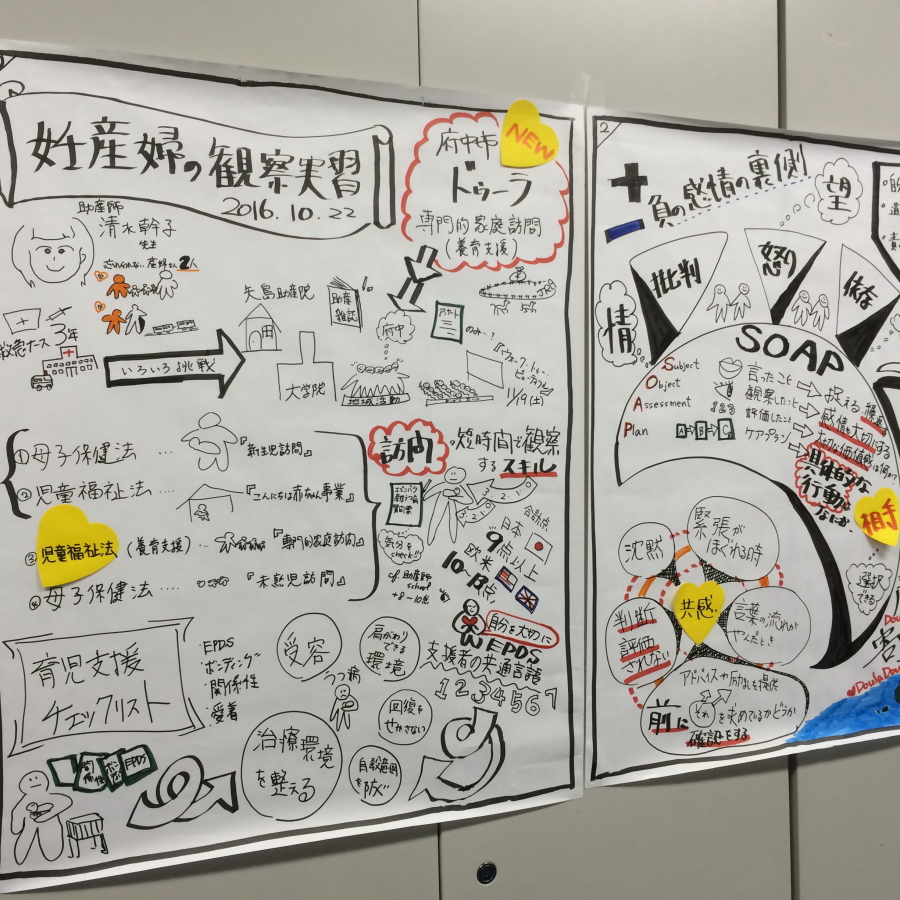 妊産婦の観察実習
2016.10.22
助産師
清水幹子
先生
忘れられない産婦さん2人
救急ナース 3年
いろいろ挑戦
矢島助産院
助産
雑誌
大学院
府中
地域活動
NEW
府中市
ドゥーラ
専門的家庭訪問
(養育支援)
11/19(土)
①母子保健法 ‥‥ 『新生児訪問』
②児童福祉法 ‥‥ 『こんにちは赤ちゃん事業』
③児童福祉法 (養育支援) … 『専門的家庭訪問』
④母子保健法 … 『未熟児訪問』
訪問の短時間で観察
するスキル
3.2.1
合計点
日本
9点以上
欧米
10~13点
気分を
check!!
助産師
school
+8~10点
自分を大切に
EPDS
支援者の共通言語
1 2 3 4 5 6 7
育児支援
チェックリスト
・EPDS
・ボンディング
・関係性
・愛着
EPDS
受容
肩がわり
できる
環境
うつ病
回復を
せかさない
治療環境
を整える
自殺企図
を防ぐ
2
+
-
負の感情の裏側
望
情
批判
怒り
依存
SOAP
Subject
Object
Assessment
Plan
A→B→C
言ったこと
観察したこと
評価したこと
ケアプラン
捉える
感情を大切にする
大切な価値感は何か?
具体的な
行動は
なにか
相手
選択
できる
沈黙
緊張が
ほぐれる時
共感
判断
評価
されない
言葉の流れが
やんだとき
アドバイスや励ましを提供
前に
それを求めているかどうか
確認をする